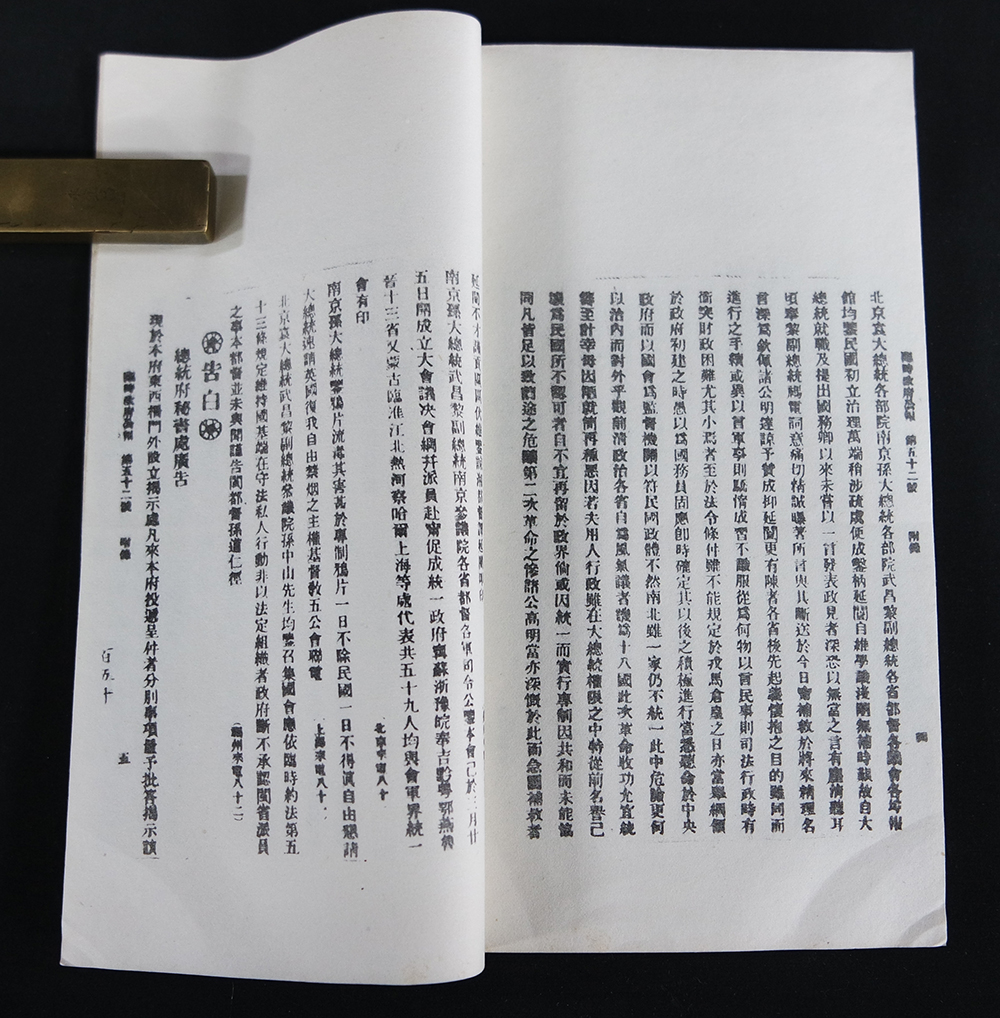 臨時政府公報 第五十二號 附錄 四
北京袁大總統各部院南京孫大總統各部院武昌黎副總統各省都督各議會各報
館均鑒民國初立治理萬端稍涉疏虞便成鑿枘延闓自維學識淺陋無補時艱故自大
總統就職及提出國務卿以來未嘗以一言發表政見者深恐以無當之言有塵清聽耳
頃奉黎副總統通電詞意痛切精誠曝著所討與其斷送於今日甯補救於將來精理名
言深為欽佩諸公明達諒予贊成抑延闓更有陳者各省後先起義懷抱之目的雖同而
進行之手續或異以言軍事則驕惰成習不識服從為何物以言民事則司法行政時有
衝突財政困難尤其小焉者至於法令條件雖不能規定於戎馬倉皇之日亦當舉綱領
於政府初建之時愚以為國務員固應即時確定其以後之積極進行當悉聽命於中央
政府而以國會為監督機關以符民國政體不然南北雖一家仍不統一此中危險更何
以治內而對外乎觀前清政治各省自為風氣議者譏為十八國此次革命收功尤宜統
籌至計幸毋因陋就簡再種惡因若夫用人行政雖在大總統權限之中特從前名譽已
壞為民國所不認可者自不宜再留於政界倘或因統一而實行專制因共和而未能協
同凡皆足以致前途之危險第二次革命之慘諸公高明當亦深慨於此而急圖補救者
南京孫大總統武昌黎副總統南京參議院各省都督各軍司令公鑒本會已於三月廿
五日開成立大會議決會綱并派員赴甯促成統一政府冀蘇浙豫皖奉吉黔粵鄂燕魯
晉十三省又蒙古臨淮江北熱河察哈爾上海等處代表共五十九人均與會軍界統一
會有印 北京來電八十
南京孫大總統鑒鴉片流毒其害甚於專制鴉片一日不除民國一日不得真自由懇請
大總統速請英國復我自由禁烟之主權基督教五公會聯電 上海來電八十一
北京袁大總統武昌黎副總統參議院孫中山先生均鑒召集國會應依臨時約法第五
十三條規定維持國基端在守法私人行動非以法定組織者政府斷不承認閩省派員
之事本都督並未與聞謹告閩都督孫道仁徑 福州來電八十二
告白
總統府秘書處廣告
現於本府東西欄門外設立揭示處凡來本府投遞呈件者分別事項量予批答揭示該
臨時政府公報 第五十二號 附錄 五
百五十